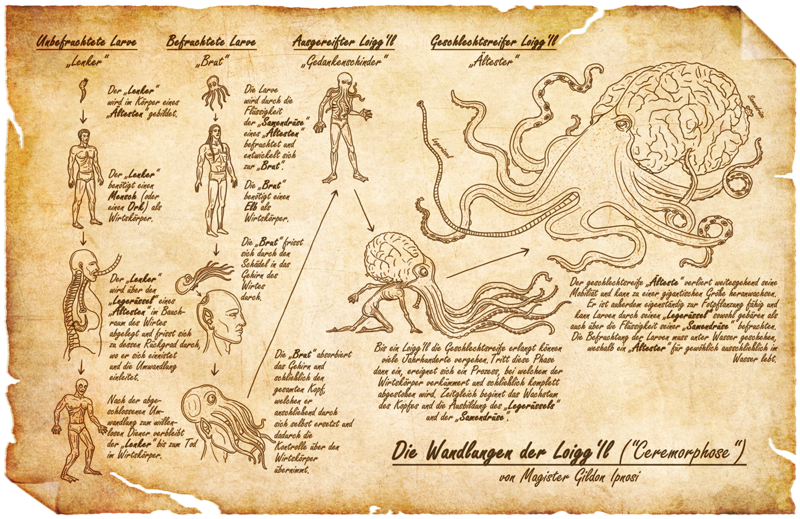 Unbefruchtete Larve
„Lenker“
Der „Lenker“
wird im Körper eines
„Ältesten“ gebildet.
Der „Lenker“
benötigt einen
Mensch (oder
einen Ork) als
Wirtskörper.
Der „Lenker“
wird über den
„Legerüssel“ eines
„Ältesten“ im Bauch-
raum des Wirtes
abgelegt und frisst sich
zu dessen Rückgrad durch,
wo er sich einnistet
und die Umwandlung
einleitet.
Nach der abge-
schlossenen Um-
wandlung zum willen-
losen Diener verbleibt
der „Lenker“ bis zum Tod
im Wirtskörper.
Befruchtete Larve
„Brut“
Die Larve
wird durch die
Flüssigkeit
der „Samendrüse“
eines „Ältesten“
befruchtet und
entwickelt sich
zur „Brut“.
Die „Brut“
benötigt einen
Elb als
Wirtskörper.
Die „Brut“ frisst
sich durch den
Schädel in das
Gehirn des
Wirtes
durch.
Die „Brut“ absorbiert
das Gehirn und
schließlich den
gesamten Kopf,
welchen er
anschließend durch
sich selbst ersetzt und
dadurch die
Kontrolle über den
Wirtskörper
übernimmt.
Ausgereifter Loigg'Il
„Gedankenschinder“
Bis ein Loigg'Il die Geschlechtsreife erlangt können
viele Jahrhunderte vergehen. Tritt diese Phase
dann ein, ereignet sich ein Prozess, bei welchem der
Wirtskörper verkümmert und schließlich komplett
abgestoßen wird. Zeitgleich beginnt das Wachstum
des Kopfes und die Ausbildung des „Legerüssels“
und der „Samendrüse“.
Geschlechtsreifer Loigg'Il
„Ältester“
Legerüssel
Samendrüse
Der geschlechtsreife „Älteste“ verliert weitesgehend seine
Mobilität und kann zu einer gigantischen Größe heranwachsen.
Er ist außerdem eigenständig zur Fotpflanzung fähig und
kann Larven durch seinen „Legerüssel“ sowohl gebären als
auch über die Flüssigkeit seiner „Samendrüse“ befruchten.
Die Befruchtung der Larven muss unter Wasser geschehen,
weshalb ein „Ältester“ für gewöhnlich ausschließlich im
Wasser lebt.
Die Wandlungen der Loigg'Il ("Ceremorphose")
von Magister Gildon Ipnosi